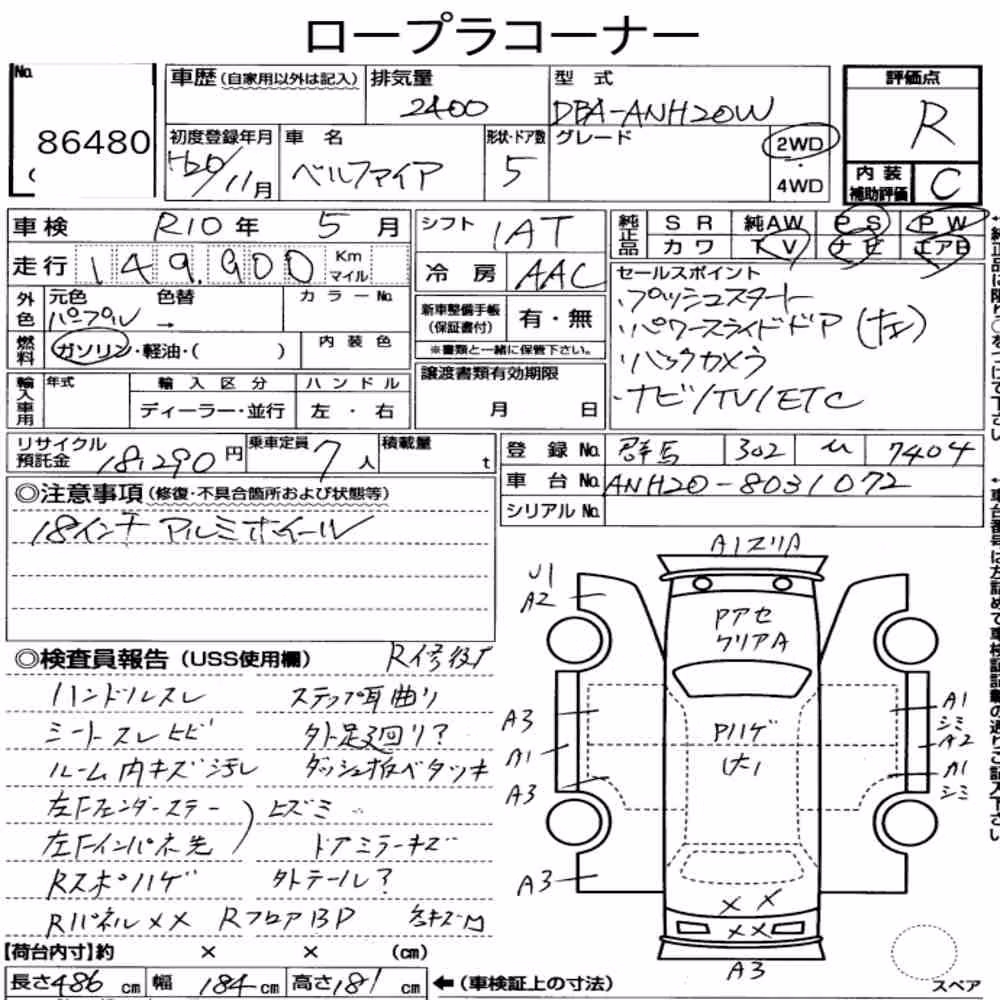 ロープラコーナー
No.
86480
車歴(自家用以外は記入)
排気量
2400
型式
DBA-ANH20W
評価点
R
初度登録年月
H20/11月
車名
ベルファイア
形状・ドア数
5
グレード
2WD
・
4WD
内装
補助評価
C
車検 R10年 5月
シフト IAT
純正品
SR 純AW PS PW
カワ TV ナビ エアB
走行 149,900 Km マイル
冷房 AAC
セールスポイント
・プッシュスタート
・パワースライドドア(左)
・バックカメラ
・ナビ/TV/ETC
外色 元色 色替 カラーNo.
パープル →
新車整備手帳
(保証書付) 有・無
※書類と一緒に保管下さい。
燃料 ガソリン・軽油・( ) 内装色
輸入車用 年式 輸入区分 ハンドル
ディーラー・並行 左・右
譲渡書類有効期限
月 日
リサイクル
預託金 18,290円 乗車定員 7人 積載量 t
登録No. 群馬 302 ム 7404
車台No. ANH20-8031072
シリアルNo.
◎注意事項(修復・不具合箇所および状態等)
18インチ アルミホイール
◎検査員報告(USS使用欄) R修復
ハンドルスレ ステップ耳曲り
シートスレヒビ 外足廻回リ?
ルーム内キズ汚レ ダッシュ板ベタツキ
左Fフェンダーステー
左Fインパネ先 ) ヒズミ
ドアミラーキズ
Rスポハゲ 外テール?
RパネルXX RフロアBP
A1ズリA
U1
A2
Pアセ
クリアA
A3
A1
A3
A3
Pハゲ
大
A1
シミ
A2
A1
シミ
X X
XX
A3
【荷台内寸】約 × × (cm)
長さ486cm 幅184cm 高さ181cm ←(車検証上の寸法)
スペア